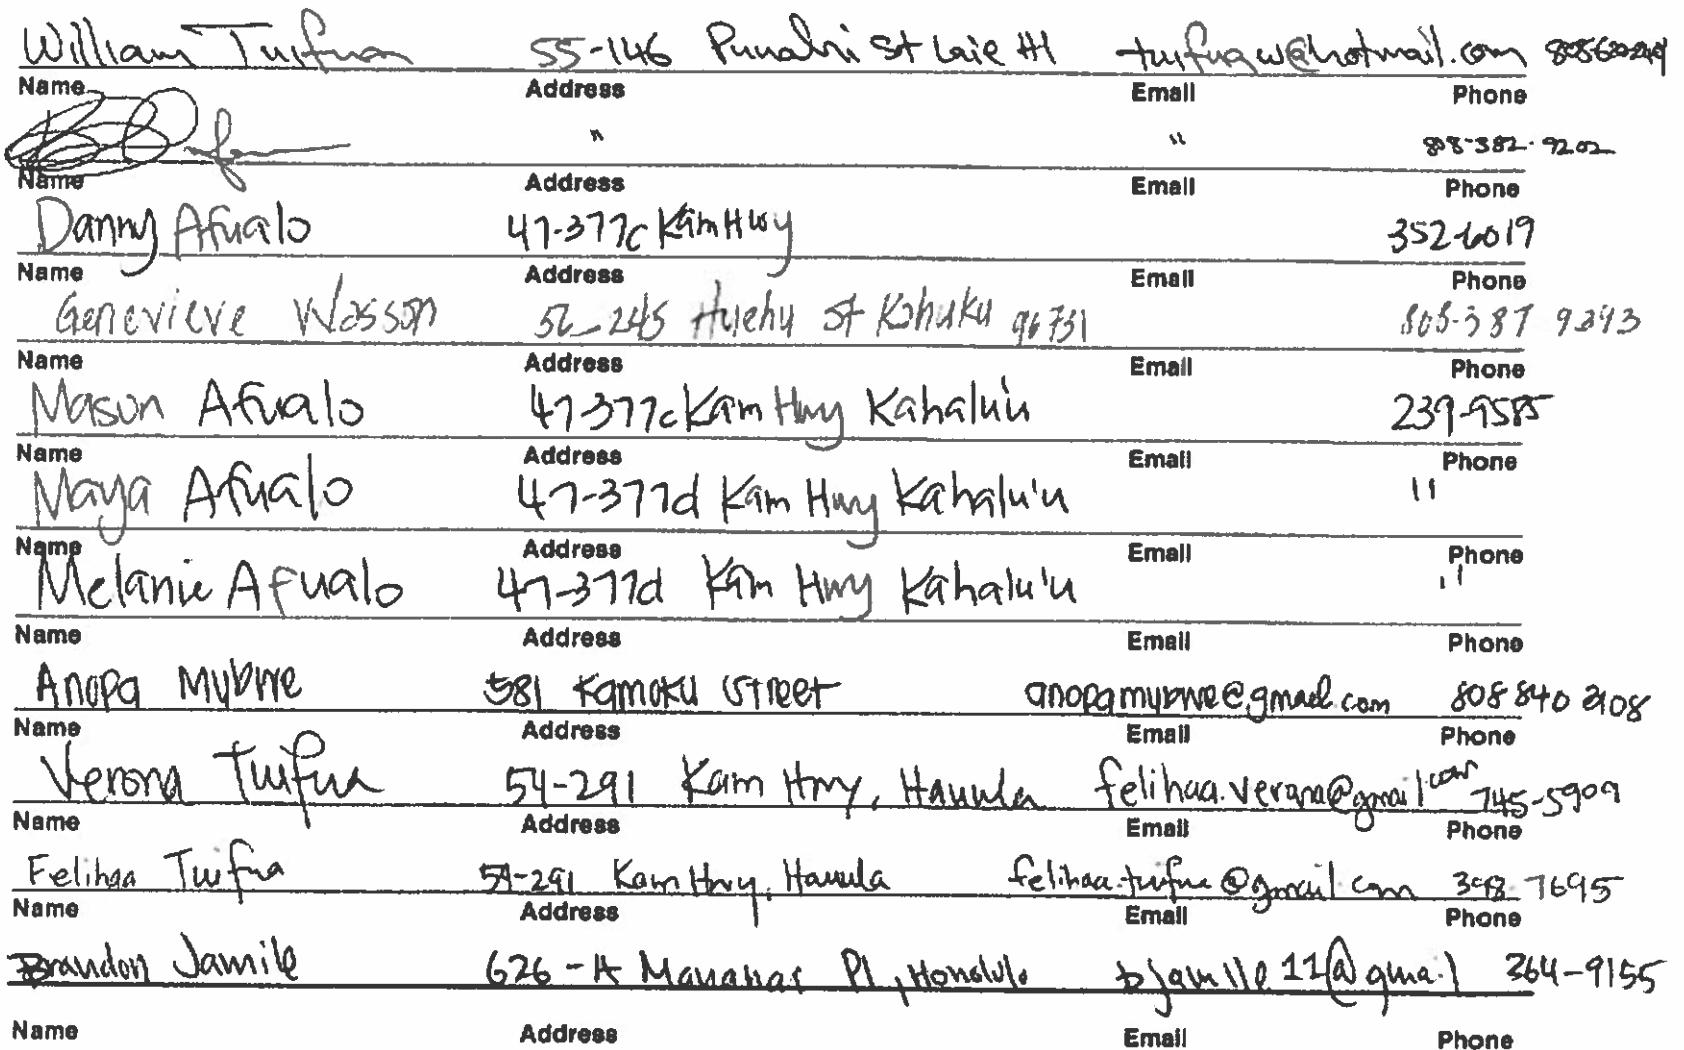 William Tuifua 55-146 Punahi St Laie HI tuifuaw@hotmail.com
Name Address Email Phone
" " 808-382-9202
Name Address Email Phone
Danny Afualo 47-377c Kam Hwy 352-6019
Name Address Email Phone
Genevieve Wasson 56-245 Huehu St Kahuku 96731 808-387 9393
Name Address Email Phone
Mason Afualo 47-377c Kam Hwy Kahalu'u 239-9585
Name Address Email Phone
Maya Afualo 47-377d Kam Hwy Kahalu'u "
Name Address Email Phone
Melanie Afualo 47-377d Kam Hwy Kahalu'u "
Name Address Email Phone
Anopa 581 Kamoku Street 808 840 2108
Name Address Email Phone
Verona Tuifua 54-291 Kam Hwy, Hauula felihaa.verona@gmail.com 745-5909
Name Address Email Phone
Felihaa Tuifua 54-291 Kam Hwy, Hauula felihaa.tuifua@gmail.com 398-7695
Name Address Email Phone
Brandon Jamile 626-A Pl, Honolulu bjamile11@gmail 364-9155
Name Address Email Phone